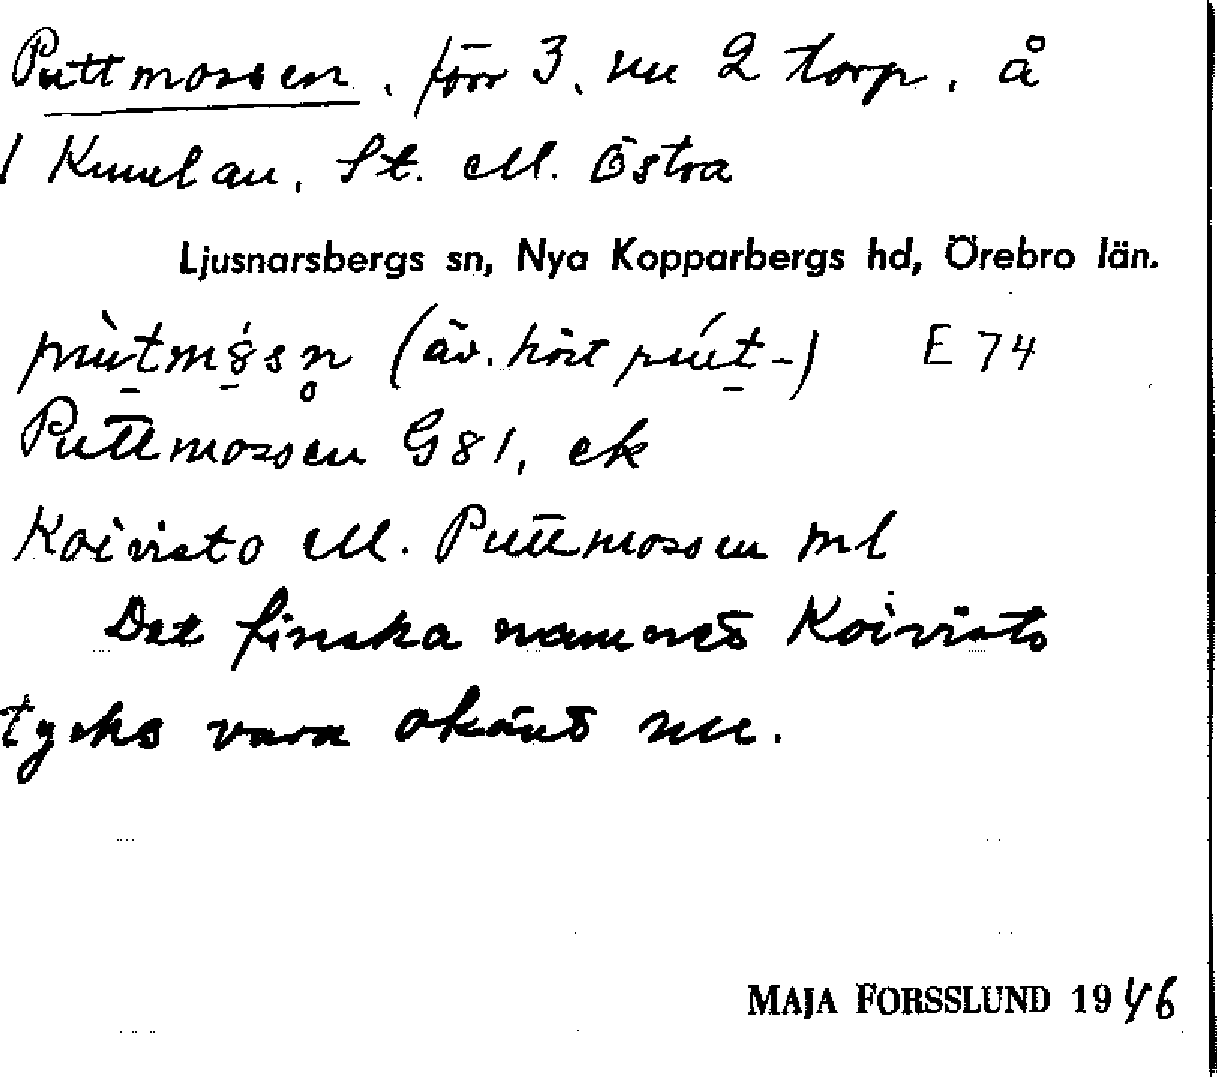 Puttmossen, förr 3, nu 2 torp, å
St. M. Östra
Ljusnarsbergs sn, Nya Kopparbergs hd, Örebro län.
(äv. hört E 74
Puttmossen G81, ek
Koivisto ell. Puttmossen ml
Det finska namnet Koivisto
tycks vara okänt nu.
MAJA FORSSLUND 1946